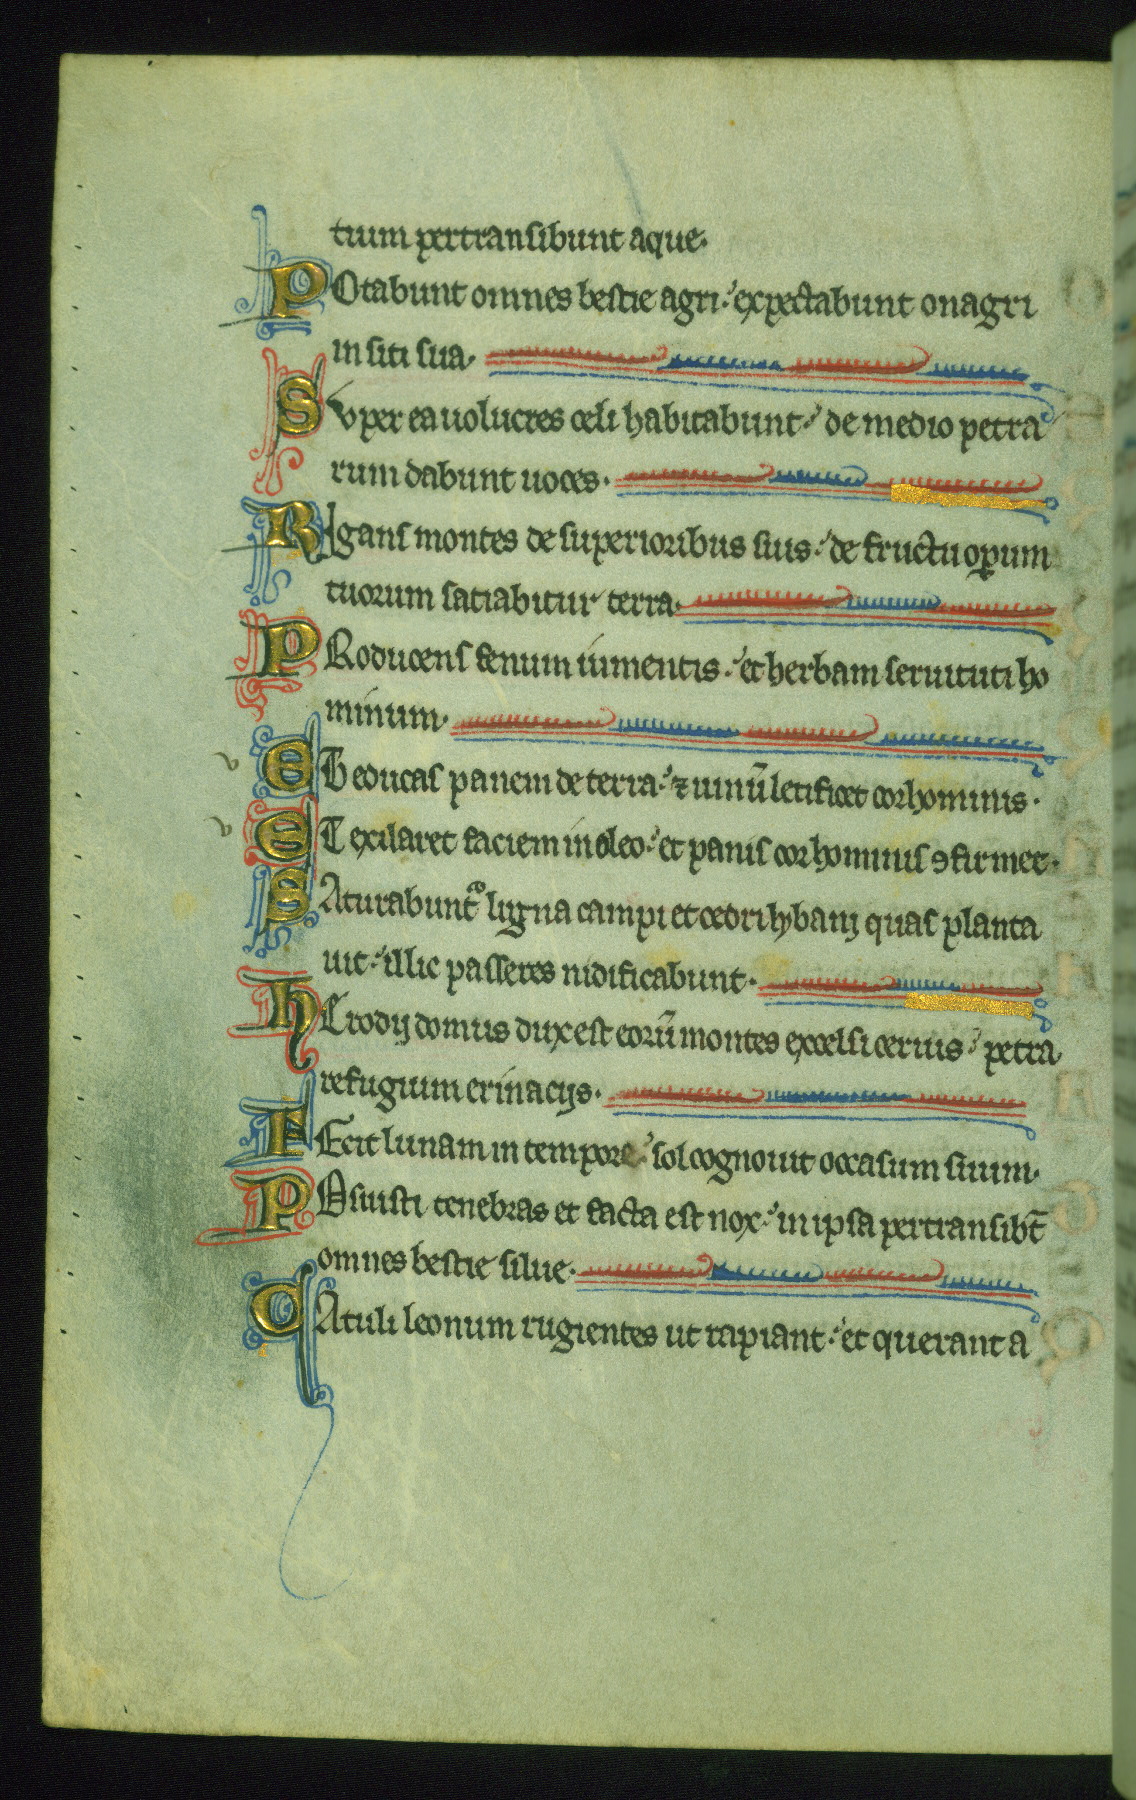 tium pertransibunt aque.
POtabunt omnes bestie agri: expectabunt onagri
in siti sua.
SVper ea uolucres celi habitabunt: de medio petra
rum dabunt uoces.
RIgans montes de superioribus suis: de fructu oꝑum
tuorum satiabitur terra.
PRoducens fenum iumentis: et herbam seruituti ho
minum.
ET educas panem de terra: ⁊ uinū letificet cor hominis.
ET exilaret faciem in oleo: et panis cor hominis ꝯfirmet.
SAturabunt͛ ligna campi et cedri lybanj quas planta
uit: illic passeres nidificabunt.
HErodij domus dux est eorū montes excelsi ceruis: petra
refugium erinacijs.
FEcit lunam in tempore: sol cognouit occasum suum.
POsuisti tenebras et facta est nox: in ipsa pertransibt̄
omnes bestie silue.
CAtuli leonum rugientes ut rapiant: et querant a